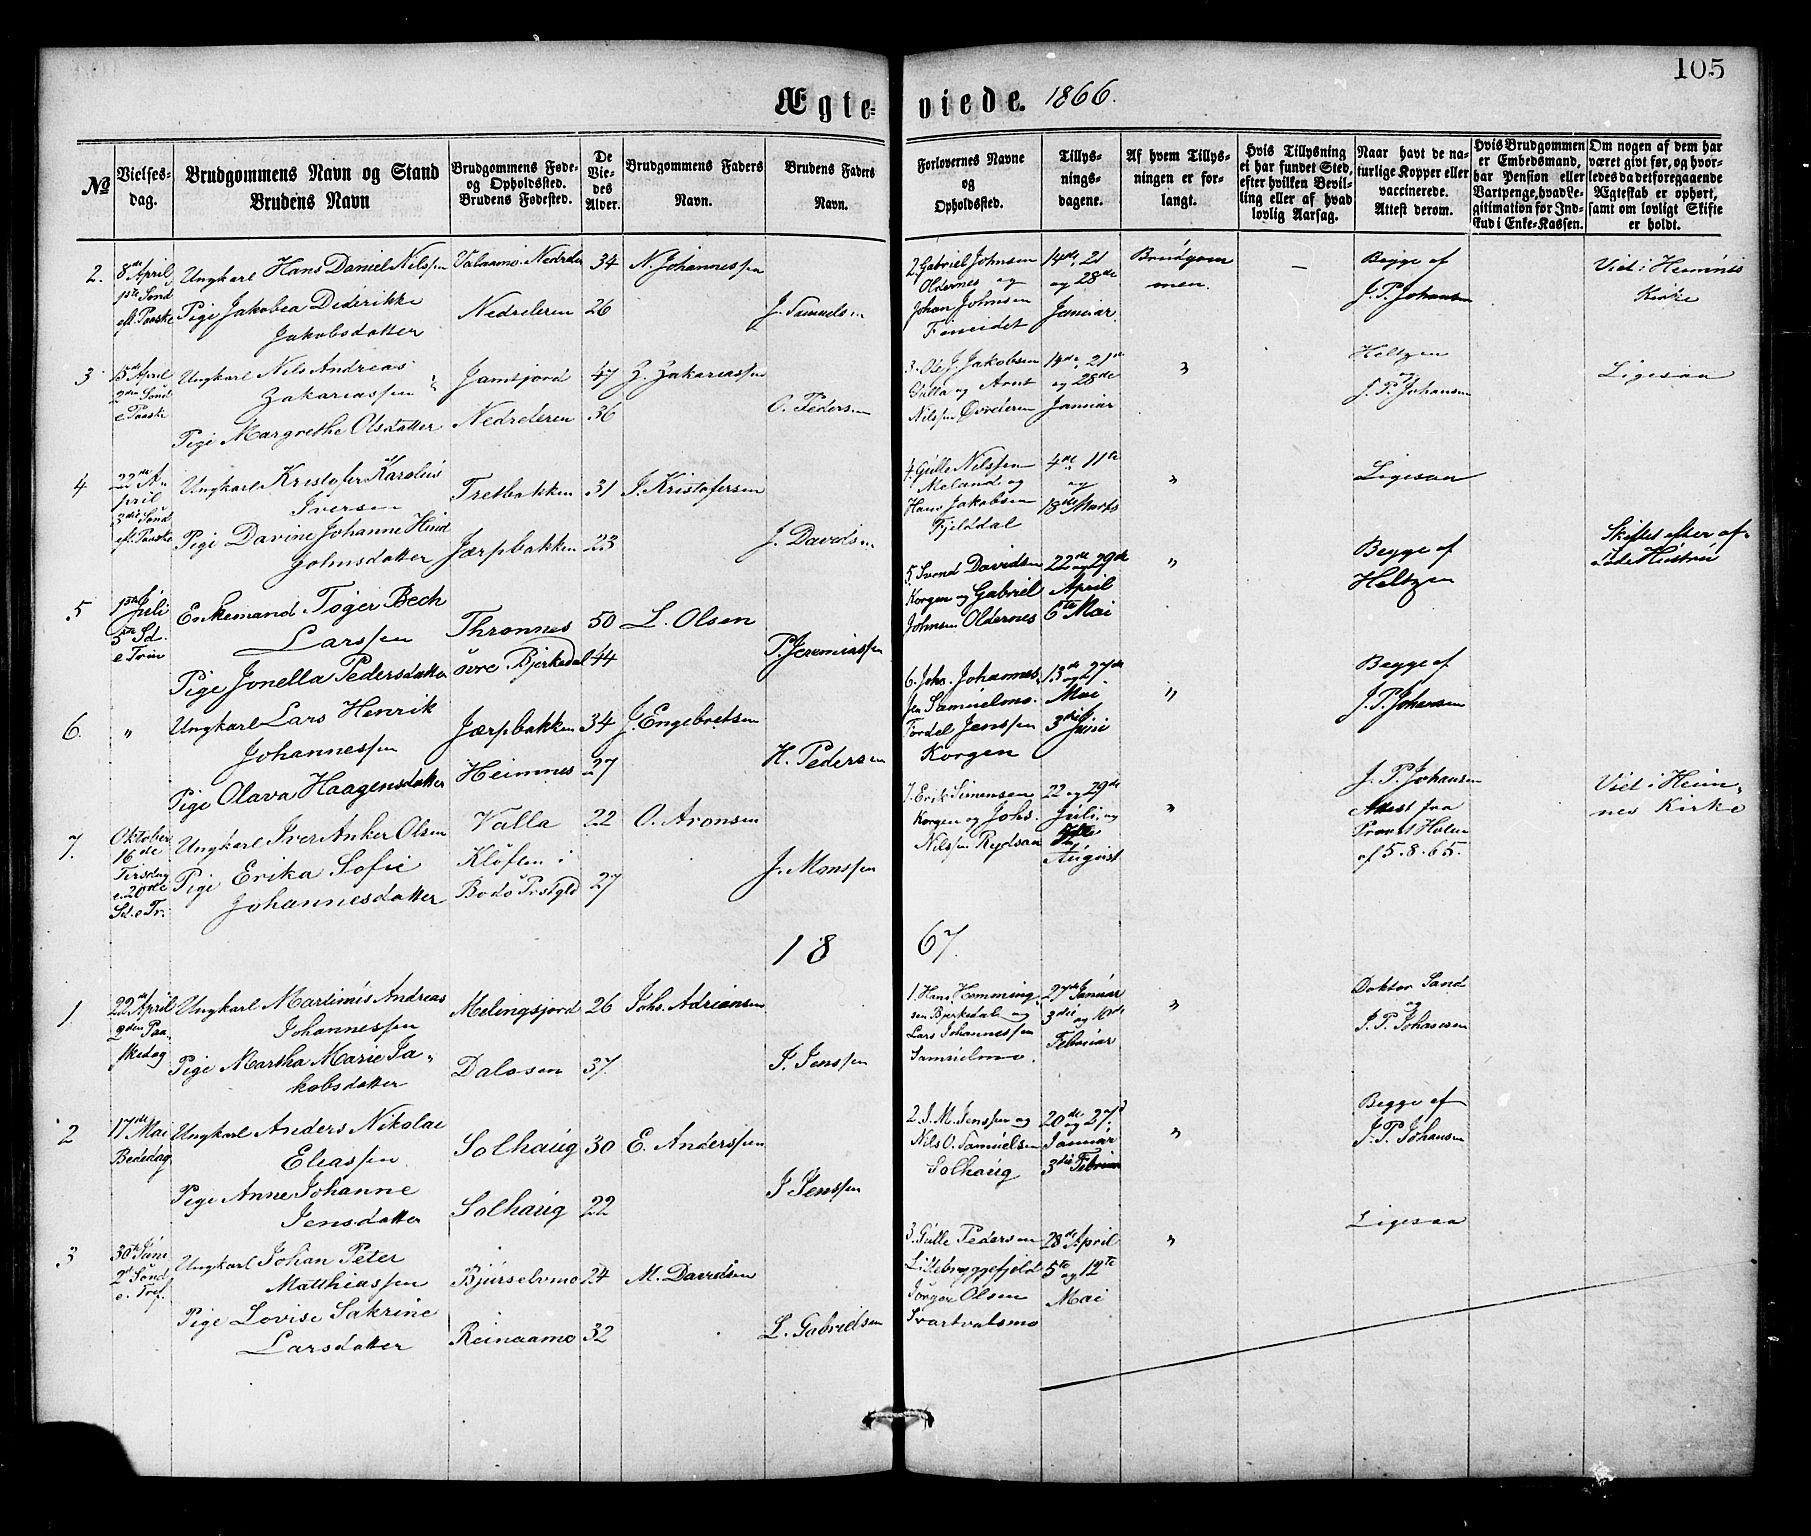 105
Ægte-viede. 1866.
No
Vielses-dag.
Brudgommens Navn og Stand
Brudens Navn
Brudgommens Føde- og Opholdssted.
Brudens Fødested.
De Vie-des Alder.
Brudgommens Faders Navn.
Brudens Faders Navn.
Forlovernes Navne og Opholdssted.
Tillys-nings-dagene.
Af hvem Tillys-ningen er for-langt.
Hvis Tillysning ei har fundet Sted, efter hvilken Bevil-ling eller af hvad lovlig Aarsag.
Naar havt de na-turlige Kopper eller vaccinerede. Attest derom.
Hvis Brudgommen er Embedsmand, har Pension eller Vartpenge, hvad Le-gitimation for Ind-skud i Enke-Kassen.
Om nogen af dem har været givt før, og hvor-ledes da det foregaaende Ægteskab er ophørt, samt om lovligt Skifte er holdt.
2. 8de April 1ste Sønd eft. Paaske
Ungkarl Hans Daniel Nilssen
34 N. Johannessen
Pige Jakobea Dederikke
Jakobsdatter
Nedreleren 26
2. Gabriel Johnsen
Oldernes og
Johan Johnsen
14de, 21
og 28de
Januar
Brudgom
men.
—
Begge af
J. P. Johansen
Viet i Hemnes
Kirke
3 15de April 2den Sønd e Paaske
Ungkarl Nils Andreas
Zakariassen
47 Z. Zakariassen
Pige Margrethe Olsdatter
Nedreleren 36
O. Pedersen
3. Ole J. Jakobsen
og Arnt
Nilssen
14de, 21de
og 28de
Januar
"
Heltzen
og
J. P. Johansen
Ligesaa
4 22de April 3die Sønd eft. Paaske
Ungkarl Kristofer Karolius
Iversen
Tretbakken 31 I. Kristofersen
Pige Davine Johanne Hind
Johnsdatter
Jærpbakken 23
J. Davidsen
4. Gulle Nilssen
Meland og
Hans Jakobsen
Fjelddal
4de 11te
og
18de Marts
"
Ligesaa
5 1ste Juli 5te Sd. e Trin
Enkemand Tøger Bech
Larssen
Thronnes 50 L. Olsen
Pige Jonella Pedersdatter
øvre Bjerkedal 44
P. Jeremiassen
5. Svend Davidsen
Korgen og Gabriel
Johnsen Oldernes
22de og 29de
April
6te Mai
"
Begge af
Heltzen
Skiftet efter af-
døde Hustru
6. "
Ungkarl Lars Henrik
Johannessen
Jærpbakken 34 J. Engebretsen
Pige Olava Haagensdatter
Heimnes 27
H. Pedersen
6. Johs. Johannes-
sen Samuelmo.
Tordel Jenssen
Korgen
13de og 27de
Mai
3die Juni
"
Begge af
J. P. Johansen
7. Oktober 16de Tirsdag e. 20de Sd. e Tr.
Ungkarl Iver Anker Olsen
Valla 22 O. Aronsen
Pige Erika Sofie
Johannesdatter
Kløften i
Bodø Prstgld 27
J. Monssen
7. Erik Simensen
Korgen og Johs.
Nilssen Rydsaa
22 og 29de
Juli og
August
"
J. P. Johansen
Attest fra
Provst Holm
af 5.8.65.
Viet i Hem-
nes Kirke
1867.
1. 22de April 2den Paaskedag
Ungkarl Martinus Andreas
Johannessen
26 Johs. Adriansen
Pige Martha Marie Ja-
kobsdatter
Dalosen 37.
J. Jenssen
1. Hans Hemming-
sen Bjerkedal og
Lars Johannessen
Samuelmo.
27de Januar
3die og 10de
Februar
"
Doktor Sand
og
J. P. Johansen
2 17de Mai Bededag
Ungkarl Anders Nikolai
Eliassen
Solhaug 30 E. Anderssen
Pige Anne Johanne
Jensdatter
Solhaug 22
J Jenssen
2. J. M. Jenssen og
Nils O. Samuelsen
Solhaug
20de og 27de
Januar
3die Februar
"
Begge af
J. P. Johansen
3 30te Juni 2d Sønd e. Tref.
Ungkarl Johan Peter
Matthiassen
Bjurselvmo 24 M. Davidsen
Pige Lovise Sakrine
Larsdatter
Reinaamo 32
L. Gabrielsen
3. Gulle Pedersen
Jørger Olsen
Svartvatsmo
28de April
5te og 12te
Mai
"
Ligesaa